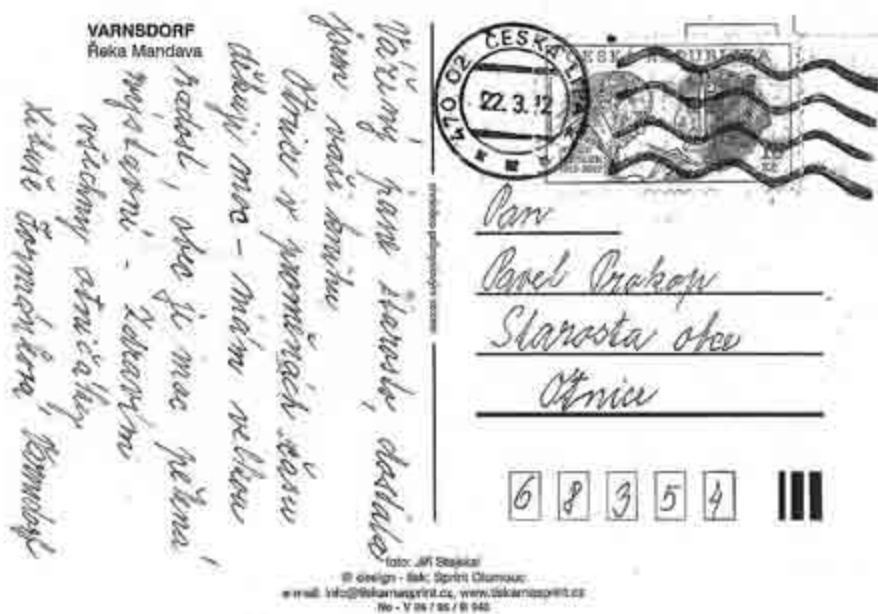 VARNSDORF
Řeka Mandava
Vážený pane starosto, dostala
jsem vaši knihu
Otnice v proměnách času
děkuji moc – mám velkou
radost, obec je moc pěkná
výstavní – Zdravím
všechny otničáky
Libuše Varnsdorf
470 02 ČESKÁ LÍPA
22.3.12
ČESKÁ REPUBLIKA
Pan
Pavel Prokop
Starosta obce
Otnice
68354
foto: Jiří Stejskal
© design - tisk: Sprint Olomouc
e-mail: info@tiskarnasprint.cz, www.tiskarnasprint.cz